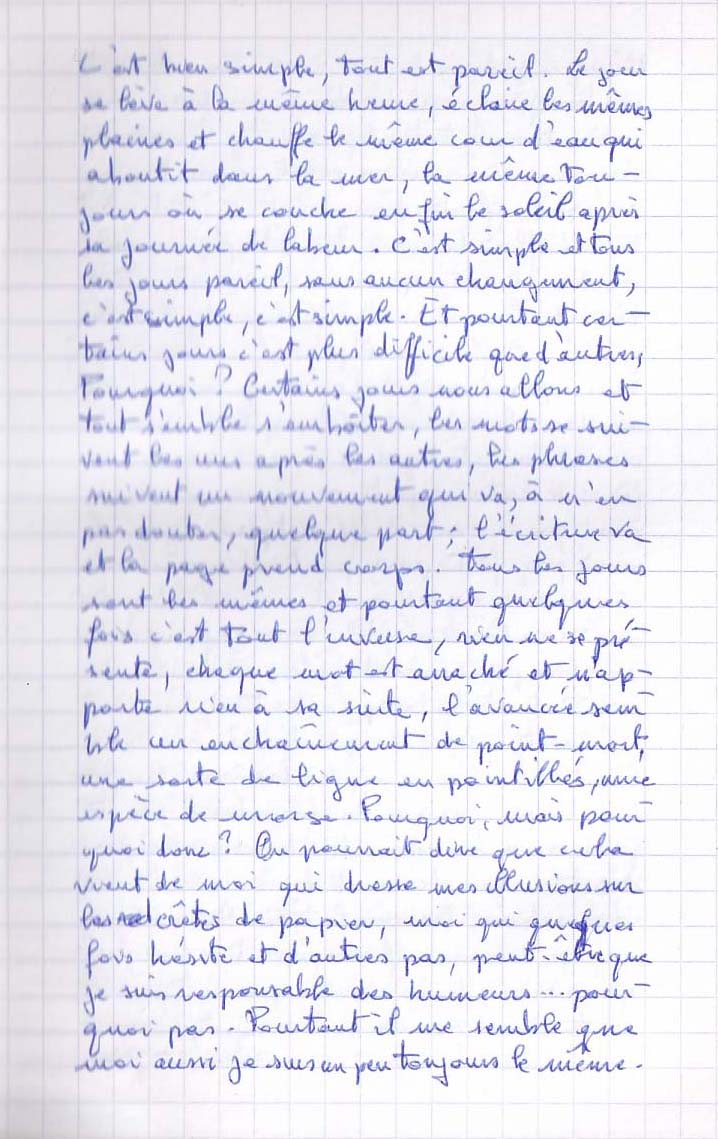 C'est bien simple, tout est pareil. Le jour
se lève à la même heure, éclaire les mêmes
plaines et chauffe le même cour d'eau qui
aboutit dans la mer, la même tou-
jours où se couche enfin le soleil après
sa journée de labeur. C'est simple et tous
les jours pareil, sans aucun changement,
c'est simple, c'est simple. Et pourtant cer-
tains jours c'est plus difficile que d'autres,
Pourquoi ? Certains jours nous allons et
tout semble s'emboîter, les mots se sui-
vent les uns après les autres, les phrases
suivent un mouvement qui va, à n'en
pas douter, quelque part ; l'écriture va
et la page prend corps. Tous les jours
sont les mêmes et pourtant quelques
fois c'est tout l'inverse, rien ne se pré-
sente, chaque mot est arraché et n'ap-
porte rien à sa suite, l'avancée sem-
ble un enchaînement de point-mort,
une sorte de ligne en pointillés, une
espèce de morse. Pourquoi, mais pour-
quoi donc ? On pourrait dire que cela
vient de moi qui dresse mes illusions sur
les crêtes de papier, moi qui quelques
fois hésite et d'autres pas, peut-être que
je suis responsable des humeurs... pour-
quoi pas. Pourtant il me semble que
moi aussi je suis un peu toujours le même.